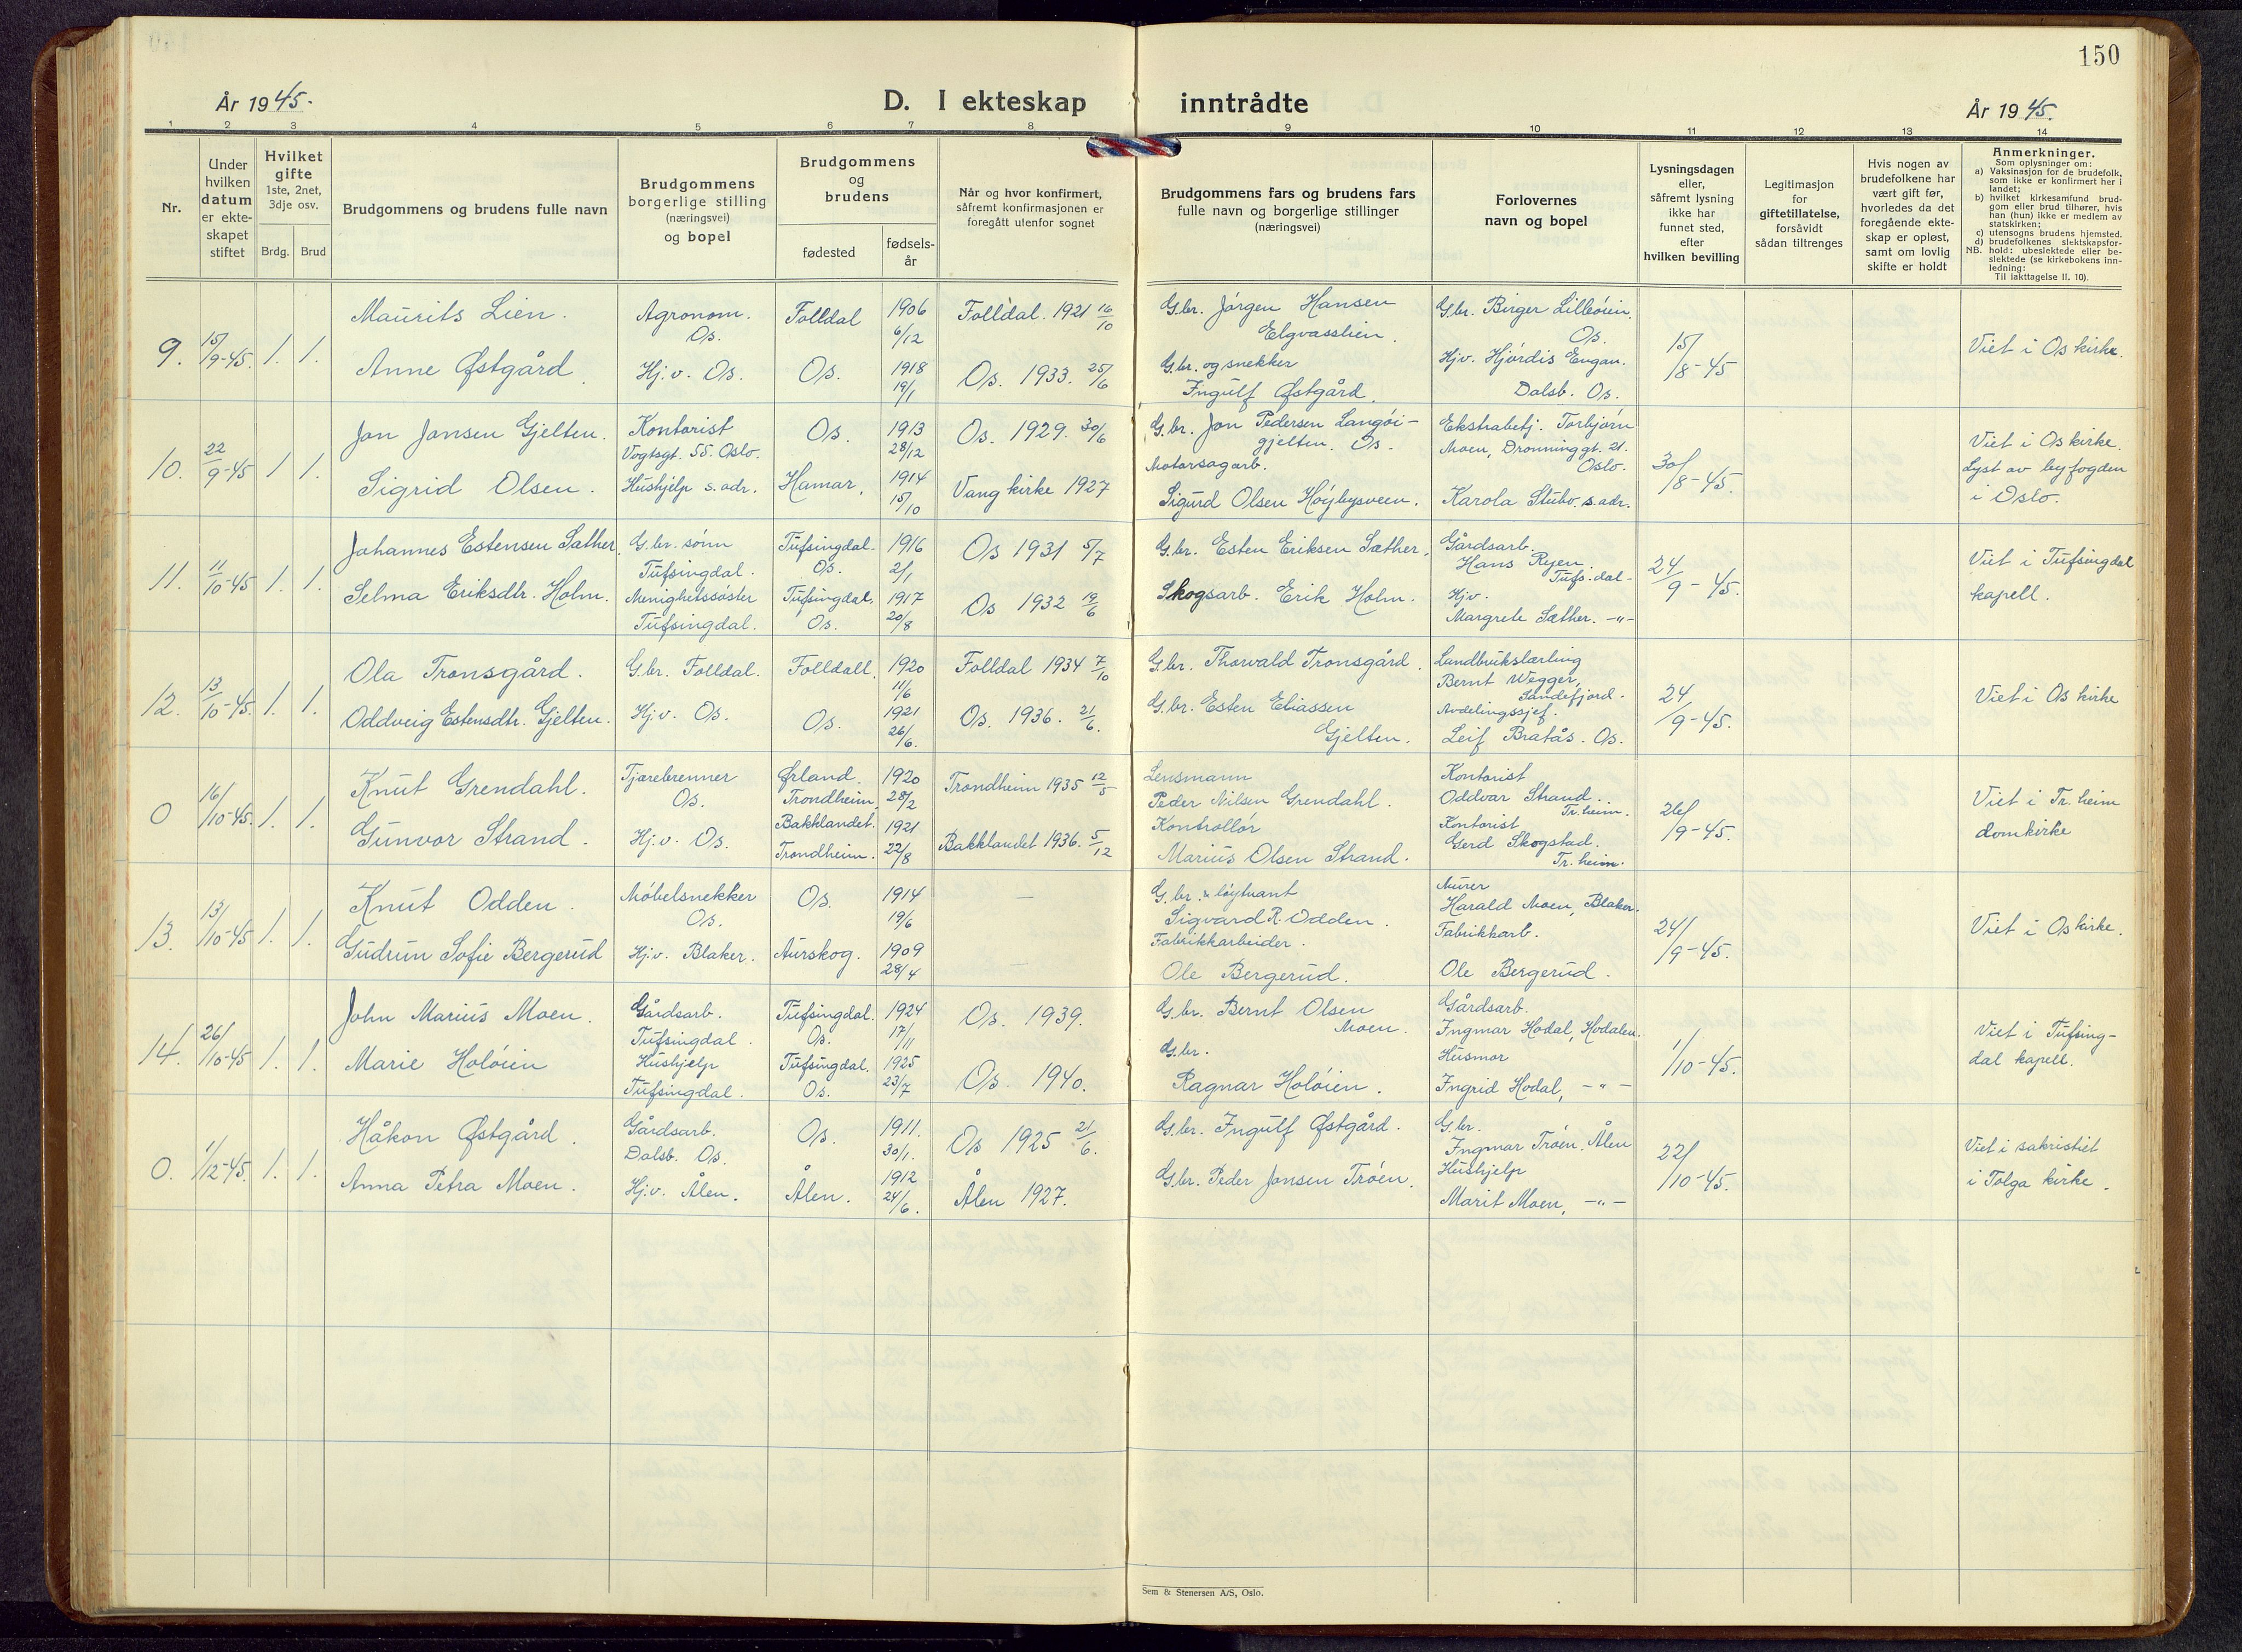 150
År 1945.
D. I ekteskap inntrådte
År 1945.
1 2 3 4 5 6 7 8 9 10 11 12 13 14
Nr.
Under
hvilken
datum
er ekte-
skapet
stiftet
Hvilket
gifte
1ste, 2net,
3dje osv.
Brdg. Brud
Brudgommens og brudens fulle navn
Brudgommens
borgerlige stilling
(næringsvei)
og bopel
Brudgommens
og
brudens
fødested
fødsels-
år
Når og hvor konfirmert,
såfremt konfirmasjonen er
foregått utenfor sognet
Brudgommens fars og brudens fars
fulle navn og borgerlige stillinger
(næringsvei)
Forlovernes
navn og bopel
Lysningsdagen
eller,
såfremt lysning
ikke har
funnet sted,
efter
hvilken bevilling
Legitimasjon
for
giftetillatelse,
forsåvidt
sådan tiltrenges
Hvis nogen av
brudefolkene har
vært gift før,
hvorledes da det
foregående ekte-
skap er opløst,
samt om lovlig
skifte er holdt
Anmerkninger.
Som oplysninger om:
a) Vaksinasjon for de brudefolk,
som ikke er konfirmert her i
landet;
b) hvilket kirkesamfund brud-
gom eller brud tilhører, hvis
han (hun) ikke er medlem av
statskirken;
c) utensogns brudens hjemsted.
d) brudefolkenes slektskapsfor-
NB. hold: ubeslektede eller be-
slektede (se kirkebokens inn-
ledning:
Til iakttagelse II. 10).
9. 15/9-45 1. 1.
Maurits Lien.
Agronom.
Os.
Folldal
1906
6/12
Folldal. 1921 16/10
G.br. Jørgen Hansen
Elgvasslien.
G.br. Birger Lilleøien.
Os.
Anne Østgård.
Hj.v. Os.
Os.
1918
19/1
Os. 1933. 25/6
G.br. og snekker
Ingulf Østgård.
Hjv. Hjørdis Engan.
Dalsb. Os.
15/8-45
Viet i Os kirke.
10. 22/9-45 1 1.
Jon Jonsen Gjelten.
Kontorist
Vogtsgt. 55. Oslo.
Os.
1913
28/12
Os. 1929. 30/6
G.br. Jon Pedersen Langøi-
gjelten. Os.
Ekstrabetj. Torbjørn
Moen, Dronninggt. 21.
Oslo.
Sigrid Olsen.
Hushjelp s. adr.
Hamar.
1914
15/10
Vang kirke 1927
Motorsagarb.
Sigurd Olsen Høybysveen.
Karola Stubo. s. adr.
30/8-45.
Viet i Os kirke.
Lyst av byfogden
i Oslo.
11. 11/10-45 1. 1.
Johannes Estensen Sæther.
G.br. sønn
Tufsingdal.
Tufsingdal.
Os.
1916
2/1
Os 1931 5/7
G.br. Esten Eriksen Sæther.
Gårdsarb.
Hans Ryen.
Tufs.dal-
Selma Eriksdtr. Holm.
Menighetssøster
Tufsingdal.
Tufsingdal.
Os.
1917
20/8
Os 1932 19/6
Skogsarb. Erik Holm.
Hjv.
Margrete Sæther. -"-
24/9-45.
Viet i Tufsingdal
kapell.
12. 13/10-45. 1. 1.
Ola Tronsgård.
G.br. Folldal.
Folldall.
1920
11/6
Folldal 1934 7/10
G.br. Thorvald Tronsgård.
Landbrukslærling
Bernt Wegger,
Sandefjord.
Oddveig Estensdtr. Gjelten.
Hj.v. Os.
Os.
1921
26/6.
Os. 1936. 21/6.
G.br. Esten Eliassen
Gjelten.
Avdelingssjef.
Leif Bratås. Os.
24/9-45.
Viet i Os kirke
0 16/10-45. 1. 1.
Knut Grendahl.
Tjærebrenner
Os.
Ørland.
Trondheim.
1920
28/2
Trondheim 1935 12/5
Lensmann
Peder Nilsen Grendahl.
Kontorist
Oddvar Strand.
Tr.heim.
Gunvor Strand.
Hj.v. Os.
Bakklandet.
Trondheim.
1921
22/8
Bakklandet 1936. 5/12
Kontrollør
Marius Olsen Strand.
Kontorist
Gerd Skogstad.
Tr.heim.
26/9-45.
Viet i Tr.heim
domkirke
13. 13/10-45 1. 1.
Knut Odden.
Møbelsnekker
Os.
Os.
1914
19/6
—
G.br. & løytnant
Sigvard R. Odden.
Murer
Harald Moen, Blaker.
Gudrun Sofie Bergerud
Hj.v. Blaker.
Aurskog.
1909
28/4
—
Fabrikkarbeider.
Ole Bergerud.
Fabrikkarb.
Ole Bergerud.
24/9-45.
Viet i Os kirke.
14. 26/10-45 1. 1.
John Marius Moen.
Gårdsarb.
Tufsingdal.
Tufsingdal.
Os.
1924
17/11
Os. 1939.
G.br. Bernt Olsen
Moen.
Gårdsarb.
Ingmar Hodal, Hodalen.
Marie Holøien
Hushjelp
Tufsingdal.
Tufsingdal.
Os.
1925
23/7
Os. 1940.
G.br.
Ragnar Holøien.
Husmor
Ingrid Hodal, -"-
1/10-45.
Viet i Tufsing-
dal kapell.
0. 1/12-45. 1. 1.
Håkon Østgård.
Gårdsarb.
Dalsb. Os.
Os.
1911.
30/1.
Os 1925 21/6.
G.br. Ingulf Østgård.
G.br.
Ingmar Trøen. Ålen
Anna Petra Moen.
Hj.v. Ålen.
Ålen.
1912
24/6.
Ålen 1927.
G.br. Peder Jonsen Trøen.
Hushjelp
Marit Moen, -"-
22/10-45.
Viet i sakristiet
i Tolga kirke.
Sem & Stenersen A/S, Oslo.